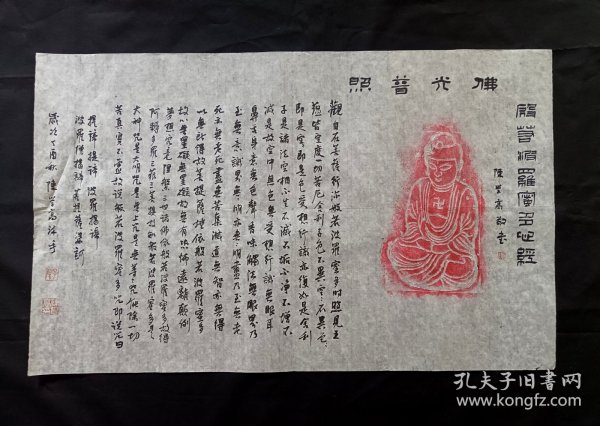 般若波羅蜜多心經
佛光普照
卍
觀自在菩薩行深般若波羅蜜多時照見五
蘊皆空度一切苦厄舍利子色不異空空不異色
即是空空即是色受想行識亦復如是舍利
子是諸法空相不生不滅不垢不淨不增不
減是故空中無色無受想行識無眼耳
鼻舌身意無色聲香味觸法無眼界乃
至無意識界無無明亦無無明盡乃至無老
死亦無老死盡無苦集滅道無智亦無得
以無所得故菩提薩埵依般若波羅蜜多
故心無罣礙無罣礙故無有恐怖遠離顛倒
夢想究竟涅槃三世諸佛依般若波羅蜜多故得
阿耨多羅三藐三菩提故知般若波羅蜜多是
大神咒是大明咒是無上咒是無等等咒能除一切
苦真實不虛故說般若波羅蜜多咒即說咒曰
揭諦揭諦波羅揭諦
波羅僧揭諦菩提薩婆訶
歲次丁酉秋陳沐手
孔夫子旧书网
www.kongfz.com